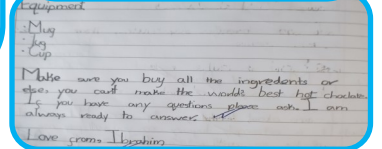 Equipment
· Mug
· Jug
· Cup
Make sure you buy all the ingredents or
else, you can't make the worlds best hot choclate.
If you have any questions please ask. I am
always ready to answer.
Love from Ibrahim